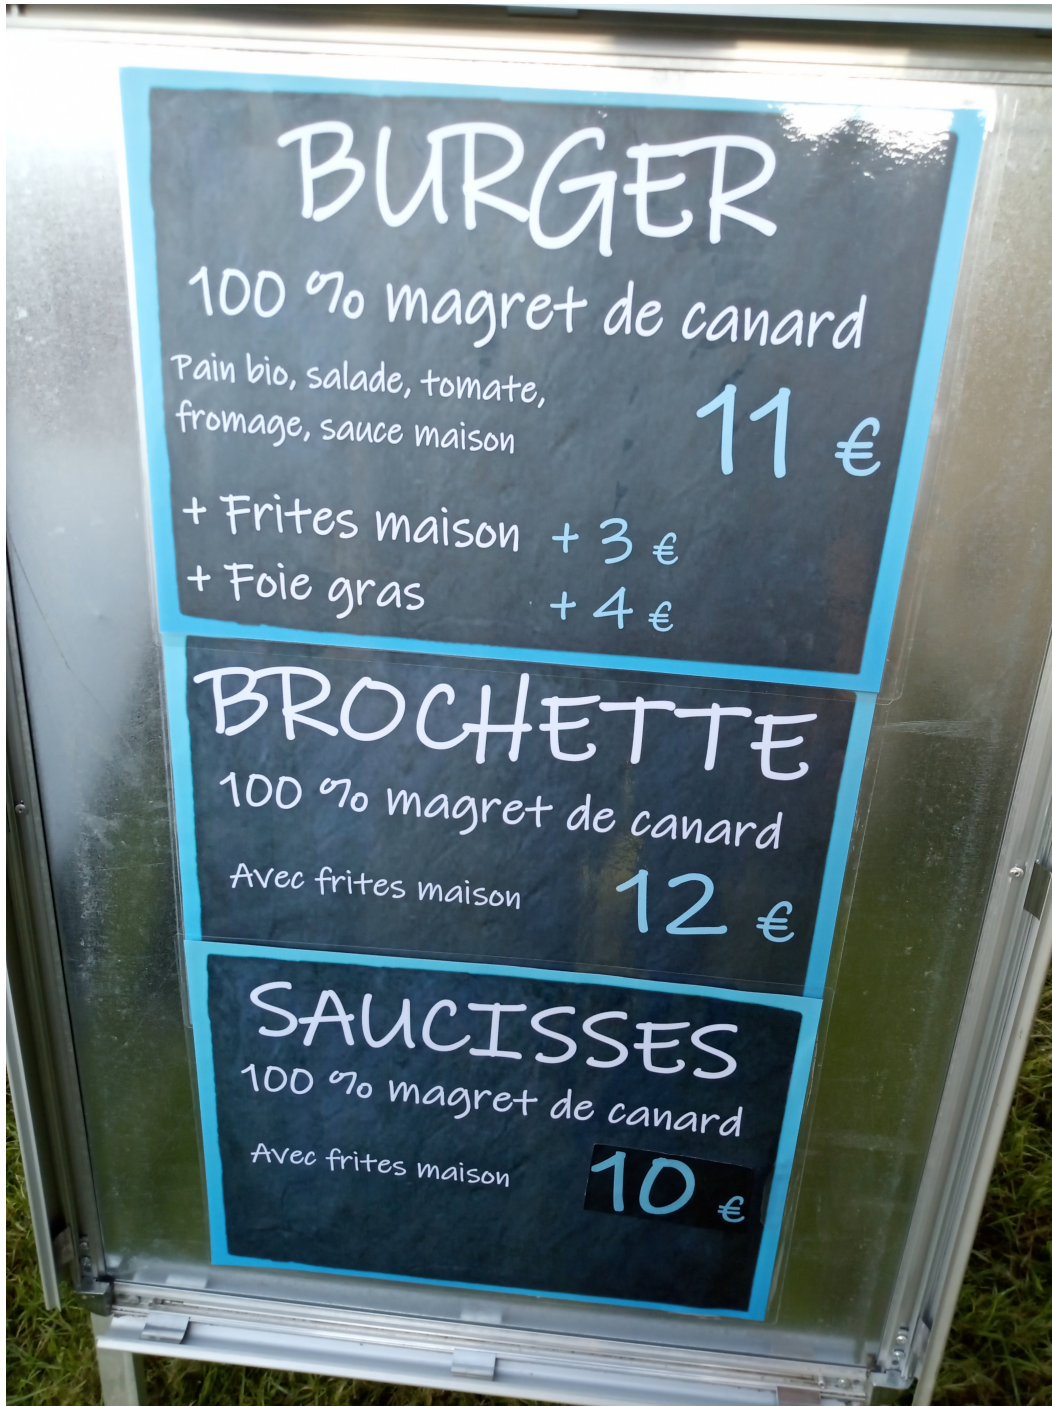 BURGER
100 % magret de canard
Pain bio, salade, tomate,
fromage, sauce maison
11 €
+ Frites maison + 3 €
+ Foie gras + 4 €
BROCHETTE
100 % magret de canard
Avec frites maison 12 €
SAUCISSES
100 % magret de canard
Avec frites maison 10 €